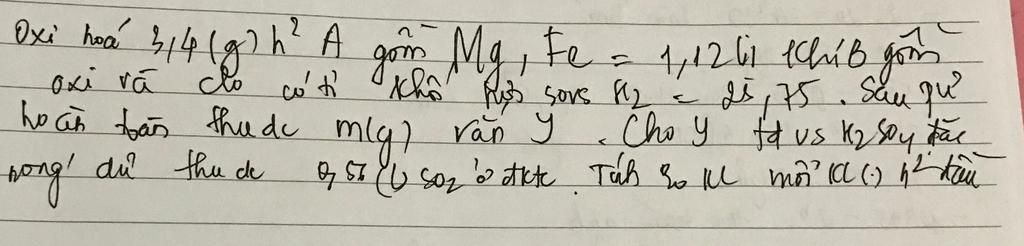 Oxi hoá 3,4(g) h² A gồm Mg, Fe = 1,12 lí khí B gồm
oxi và clo có tỉ khối so vs H2 = 25,75. Sau pứ
hoàn toàn thu dc m(g) rắn Y. Cho Y td vs H2SO4 đặc
nóng dư thu dc 0,56 (l) SO2 ở đktc. Tính % KL mỗi KL (.) h² đầu